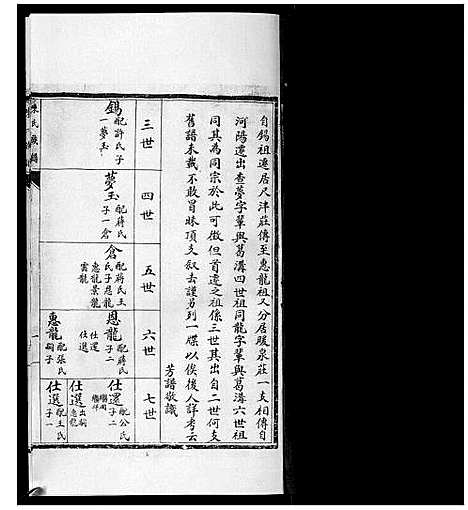 自錫祖遷居尺津莊傳至惠龍祖又分居暖泉莊一支相傳自
河陽遷出查夢字輩與葛溝四世祖同龍字輩與葛溝六世祖
同其為同宗於此可徵但首遷之祖係三世其出自二世何支
舊譜未載不敢冒昧頂支叙去謹另列一牒以俟後人詳考云
芳譜敬識
三世
錫 配許氏子一夢玉
四世
夢玉 配蔣氏子一倉
五世
倉 配蔣氏王氏子恩龍惠龍景龍雲龍
六世
恩龍 配蔣氏子二仕還仕選
惠龍 配張氏嗣子
七世
仕還 配公氏子二
仕選 出嗣惠龍
仕選 配王氏子一
氏族譜
一